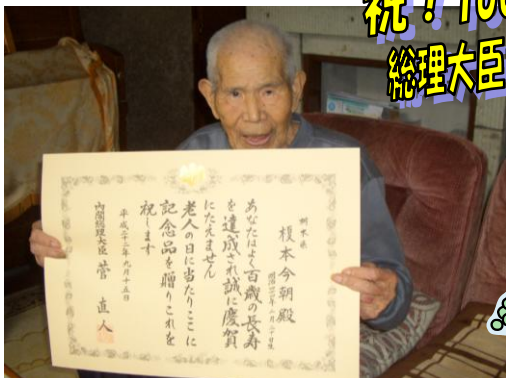 祝!100
総理大臣
栃木県
榎本今朝殿
あなたはよく百歳の長寿
を達成され誠に慶賀
にたえません
老人の日に当たりここに
記念品を贈りこれを
祝します
平成二十二年九月十五日
内閣総理大臣 菅直人